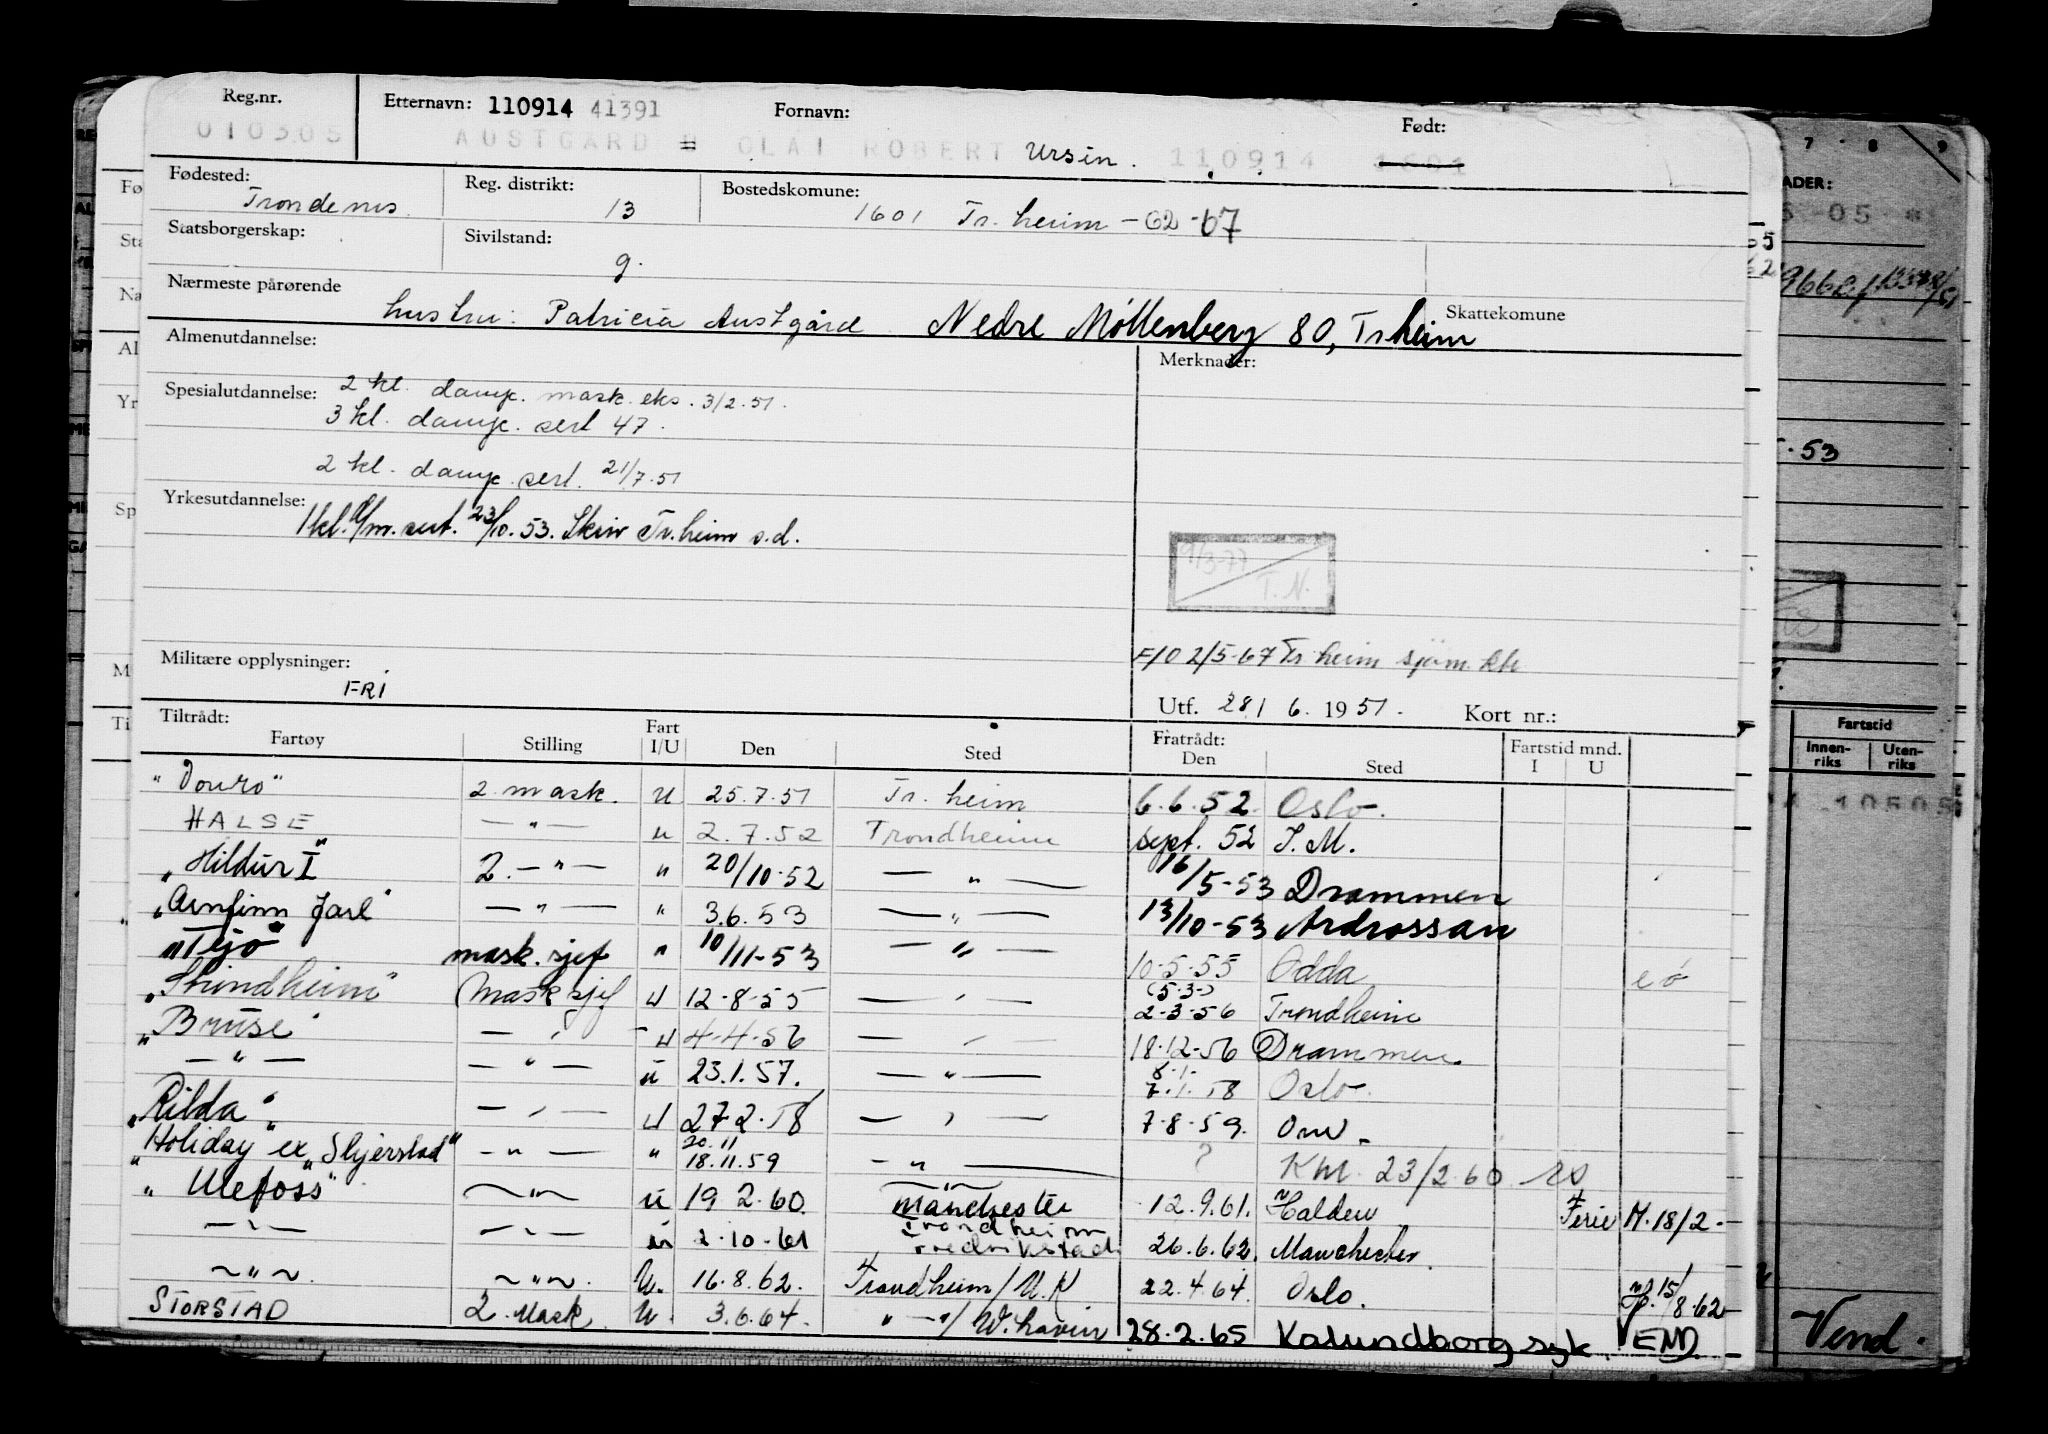 Reg.nr. Etternavn: 110914 41391 Fornavn: Født:
010305 AUSTGARD OLAI ROBERT Ursin. 110914 1601
Fødested: Trondenes Reg. distrikt: 13 Bostedskomune: 1601 Tr. heim - 62 - 67
Statsborgerskap: Sivilstand: g.
Nærmeste pårørende hustru: Patricia Austgård Nedre Möllenberg 80, Tr heim Skattekomune
Almenutdannelse: Merknader:
Spesialutdannelse: 2 kl. damp. mask. eks. 3/2.51.
3 kl. damp. sert 47.
2 kl. damp. sert. 21/7.51
Yrkesutdannelse: 1 kl. d/m. sert. 23/10.53. Skriv Tr. heim s.d.
9/3-77 T.N.
F/O 2/5-67 Tr. heim sjøm. kt
Militære opplysninger: FRI
Utf. 28/ 6. 1951. Kort nr.:
Tiltrådt: Fratrådt:
Fartøy Stilling Fart I/U Den Sted Den Sted Fartstid mnd. I U
"Douro" 2 mask. U 25.7.51 Tr. heim 6.6.52. Oslo.
HALSE — " — u 2.7.52 Trondheim sept. 52 I.M.
"Hildur I" 2. — " — " 20/10-52 — " — 16/5-53 Drammen
"Arnfinn Jarl" — " — " 3.6.53 — " — 13/10-53 Ardrossan
"Tejo" mask. sjef " 10/11-53 — " — 10-5-55 Odda
"Strindheim" Mask sjef U 12-8-55 — " — (5-3-) 2-3-56 Trondheim
"Bruse" — " — U 4-4-56 — " — 18-12-56 Drammen.
— " — — " — u 23.1.57. — " — 8.1. 7.1.58 Oslo.
"Rilda" — " — U 27 2.58 — " — 7-8-59.
"Holiday" ex "Skjerstad" — " — " 20.11 18.11.59 — " — ? KM. 23/2.60
"Ulefoss" — " — u 19 2.60 — " — Manchester 12.9.61. Halden Ferie M. 18/2-
— " — — " — u 2-10-61 Trondheim Fredrikstad 26.6.62. Manchester.
— " — — " — U. 16.8.62. Trondheim/U.K 22.4.64. Oslo. 15/8.62
STORSTAD 2. Mask. U. 3.6.64. " — "/W.haven 28.2.65 Kalundborg syk. VEND
7 8 9
-53
Fartstid
Innen-riks Uten-riks
Vend.